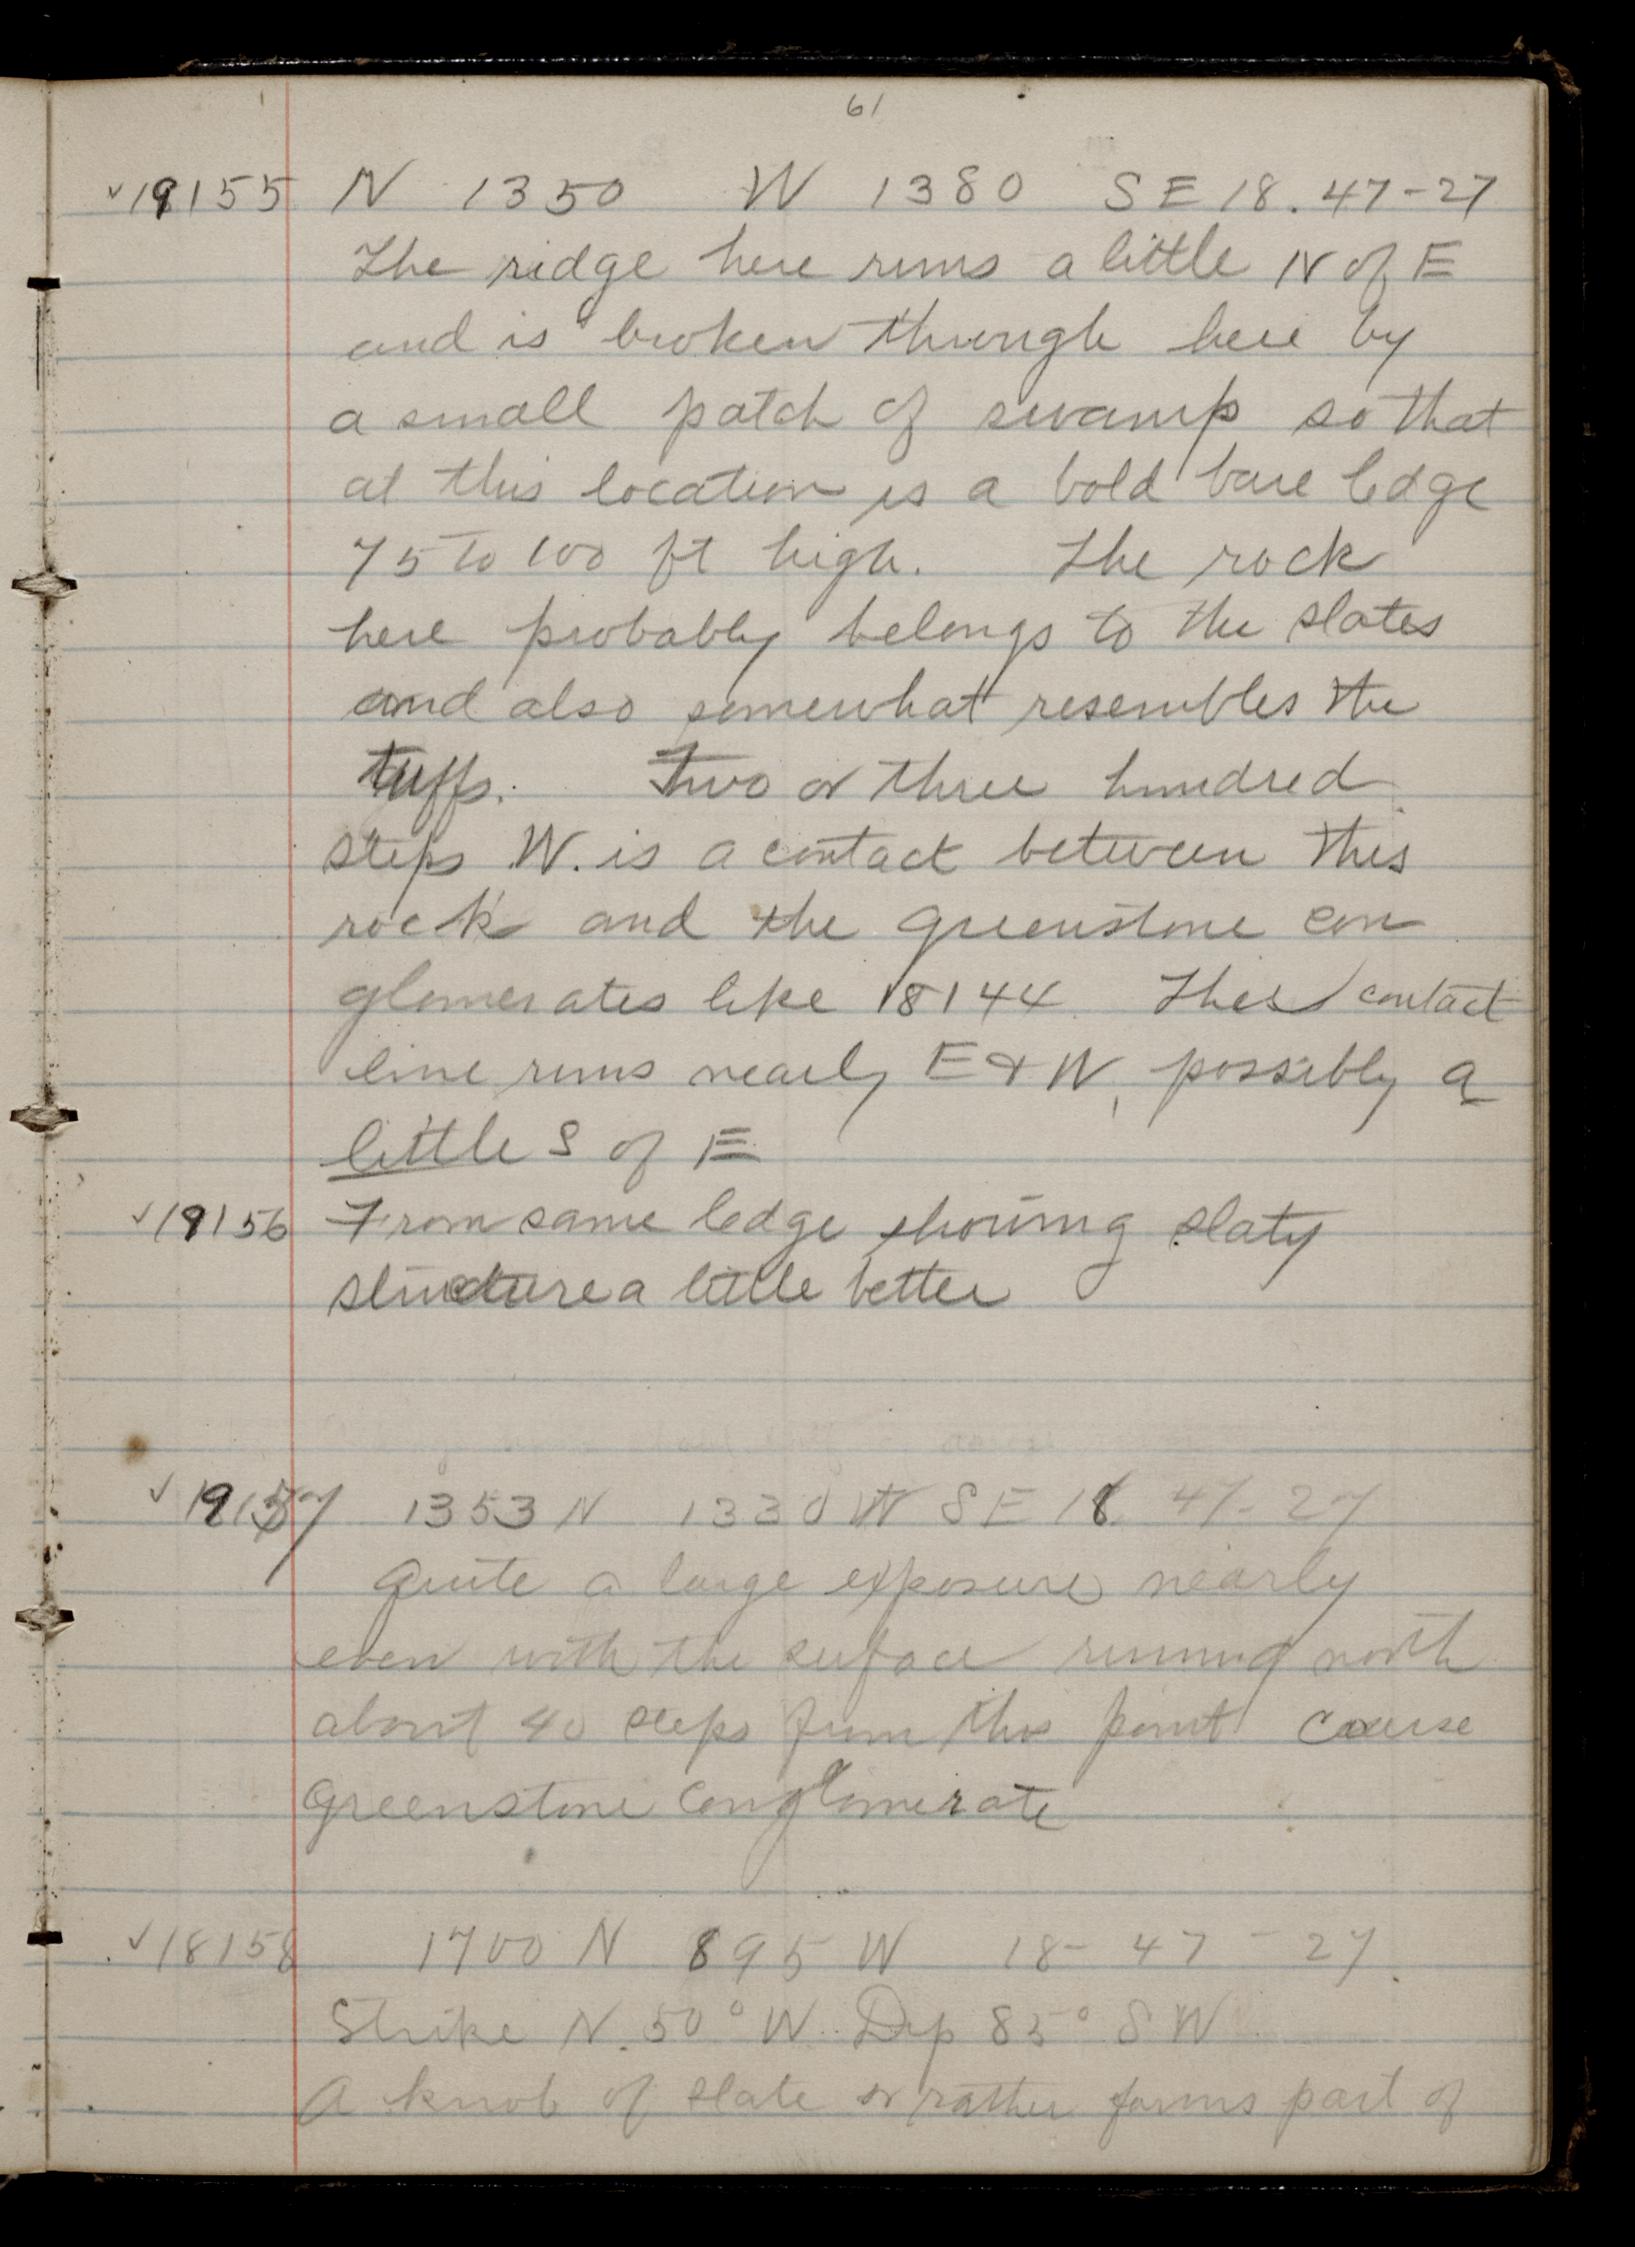 61
✓19155 N 1350 W 1380 SE 18. 47-27
The ridge here runs a little N of E
and is broken through here by
a small patch of swamp so that
at this location is a bold bare ledge
75 to 100 ft high. The rock
here probably belongs to the slates
and also somewhat resembles the
tuffs. Two or three hundred
steps W. is a contact between this
rock and the greenstone con
glomerates like 18144. This contact
line runs nearly E & W, possibly a
little S of E
✓19156 From same ledge showing slaty
structure a little better
✓19157 1353 N 1330 W SE 18. 47-27
Quite a large exposure nearly
even with the surface running north
about 40 steps from this point Coarse
greenstone conglomerate
✓18158 1700 N 895 W 18-47-27.
Strike N. 50° W. Dip 85° SW
A knob of slate or rather forms part of